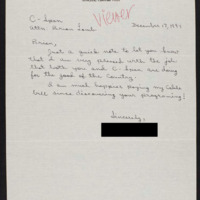 Viewer
C-Span
December 19, 
Attn: Brian Lamb
Brian,
Just a quick note to let you know
that I am very pleased with the job
that both you and C-Span are doing
for the good of the Country.
I am much happier paying my cable
bill since discovering your programing!
Sincerely,